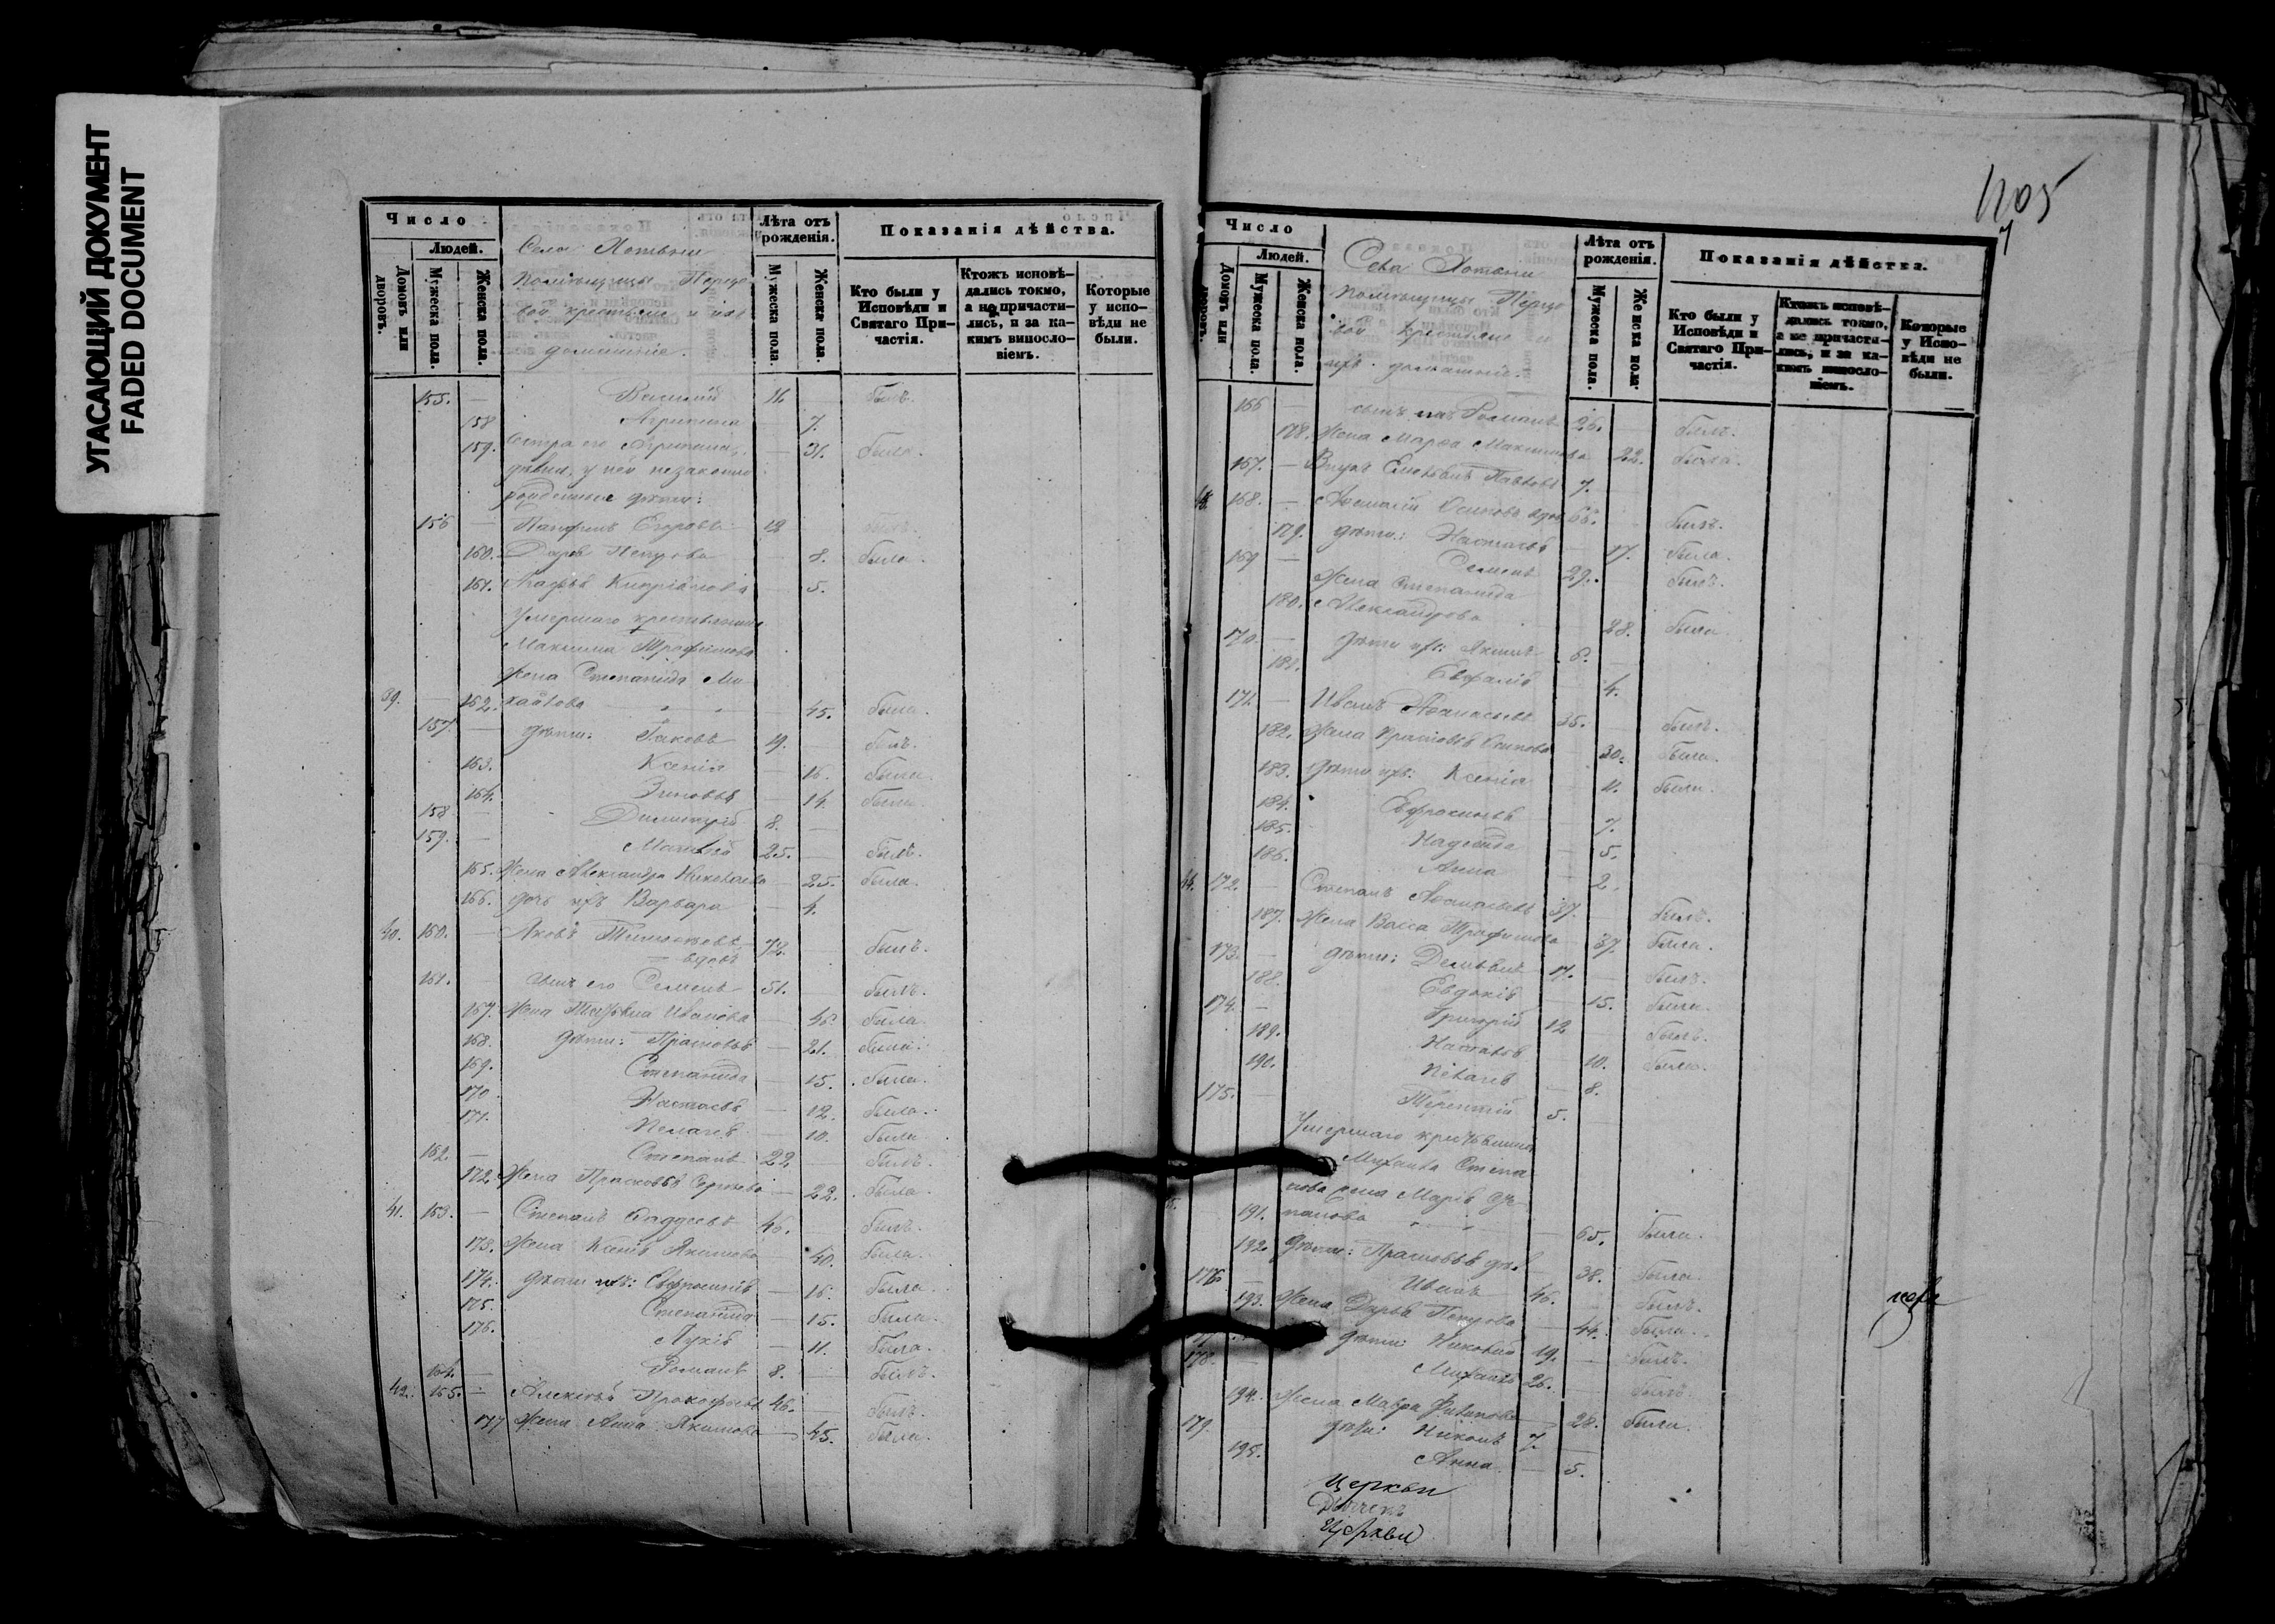 УГАСАЮЩИЙ ДОКУМЕНТ
FADED DOCUMENT
Число
Людей.
Домовъ или дворовъ.
Мужеска пола.
Женска пола.
Села Хотьвни
помѣщицы Перцо
вой крестьяне и ихъ
домашніе.
Лѣта отъ рожденія.
Мужеска пола.
Женска пола.
Показанія дѣйства.
Кто были у Исповѣди и Святаго Причастія.
Ктожъ исповѣдались токмо, а не причастились, и за какимъ винословіемъ.
Которые у исповѣди не были.
155. — Василій 11. — былъ.
158 Агрипина — 7.
159. Сестра его Агрипина, — 31. была.
дѣвка, у ней незаконно
рожденные дѣти:
156 — Панфилъ Егоровъ 12
160. Дарья Петрова — 8. была.
161. — 5.
Умершаго крестьянина
Максима Трофимова
жена Степанида Ми
39. — 162. хайлова — 45. была.
157. — дѣти: Яковъ 19. — былъ.
163. Ксенія — 16. была.
164. Зиновья — 14. была.
158 — Димитрій 8. —
159. — Матвѣй 25. — былъ.
165. Жена Александра Николаева — 25. была.
166. дочь ихъ Варвара — 4.
40. 160. — Яковъ Тимоѳеевъ 72. — былъ.
вдовъ
161. — сынъ его Семенъ 51. — былъ.
167. Жена Татьяна Иванова — 46. была.
168. дѣти: Прасковья — 21. была.
169. Степанида — 15. была.
170. Настасья — 12. была.
171. Пелагея — 10. была.
162. — Степанъ 22 — былъ.
172. Жена Прасковья Сергеева — 22. была.
41. 163. — Степанъ Фаддеевъ 46. былъ.
173. Жена Ксенія Якимова — 40. была.
174. дѣти ихъ: Евфросинія — 16. была.
175. Степанида — 15. была.
176. Лукія — 11. была.
164. — Романъ 8. — былъ.
42. 165. — Алексѣй Прокофьевъ 46. — былъ.
177 Жена Анна Якимова — 45. была.
1105
7
Число
Людей.
Домовъ или дворовъ.
Мужеска пола.
Женска пола.
Села Хотьвни
помѣщицы Перцо
вой крестьяне и
ихъ домашніе.
Лѣта отъ рожденія.
Мужеска пола.
Женска пола.
Показанія дѣйства.
Кто были у Исповѣди и Святаго Причастія.
Ктожъ исповѣдались токмо, а не причастились, и за какимъ винословіемъ.
Которые у Исповѣди не были.
166 — сынъ ихъ Романъ 26. — былъ.
178. Жена Марѳа Максимова 22. была.
167. — Внукъ Павловъ 7.
168. — Аѳанасій Осиповъ вдов. 66. былъ.
179. дѣти: Настасья — 17. была.
169 — Семенъ 29. былъ.
Жена Степанида
180. Александрова 28. была.
170. — дѣти ихъ: Якимъ 6. —
181. — 4.
171. — Иванъ Аѳанасьевъ 35. — былъ.
182. Жена Прасковья Осипова 30. была.
183. дѣти ихъ: Ксенія — 11. была.
184. Евфросинья — 7.
185. Надежда — 5.
186. Анна — 2.
172. — Степанъ Аѳанасьевъ 37. — былъ.
187. Жена Васса Трофимова 37. была.
173. — дѣти: Демьянъ 17. — былъ.
188. Евдокія — 15. была.
174. — Григорій 12 былъ.
189. Наталья — 10. была.
190. Пелагея — 8.
175. — Терентій 5.
Умершаго крестьянина
Михаила Степа
нова жена Марія Сте
191. панова — 65. была.
192. дѣти: Прасковья дѣв. — 38. была.
176. — Иванъ 46. былъ.
193. Жена Дарья Петрова — 44. была.
дѣти: Николай 19. — былъ.
178. — Михаилъ 26. — былъ.
194. Жена Мавра Филипова — 28. была.
179. дѣти: Никонъ 7. —
195. Анна — 5.
церкви
Дьячекъ
церкви